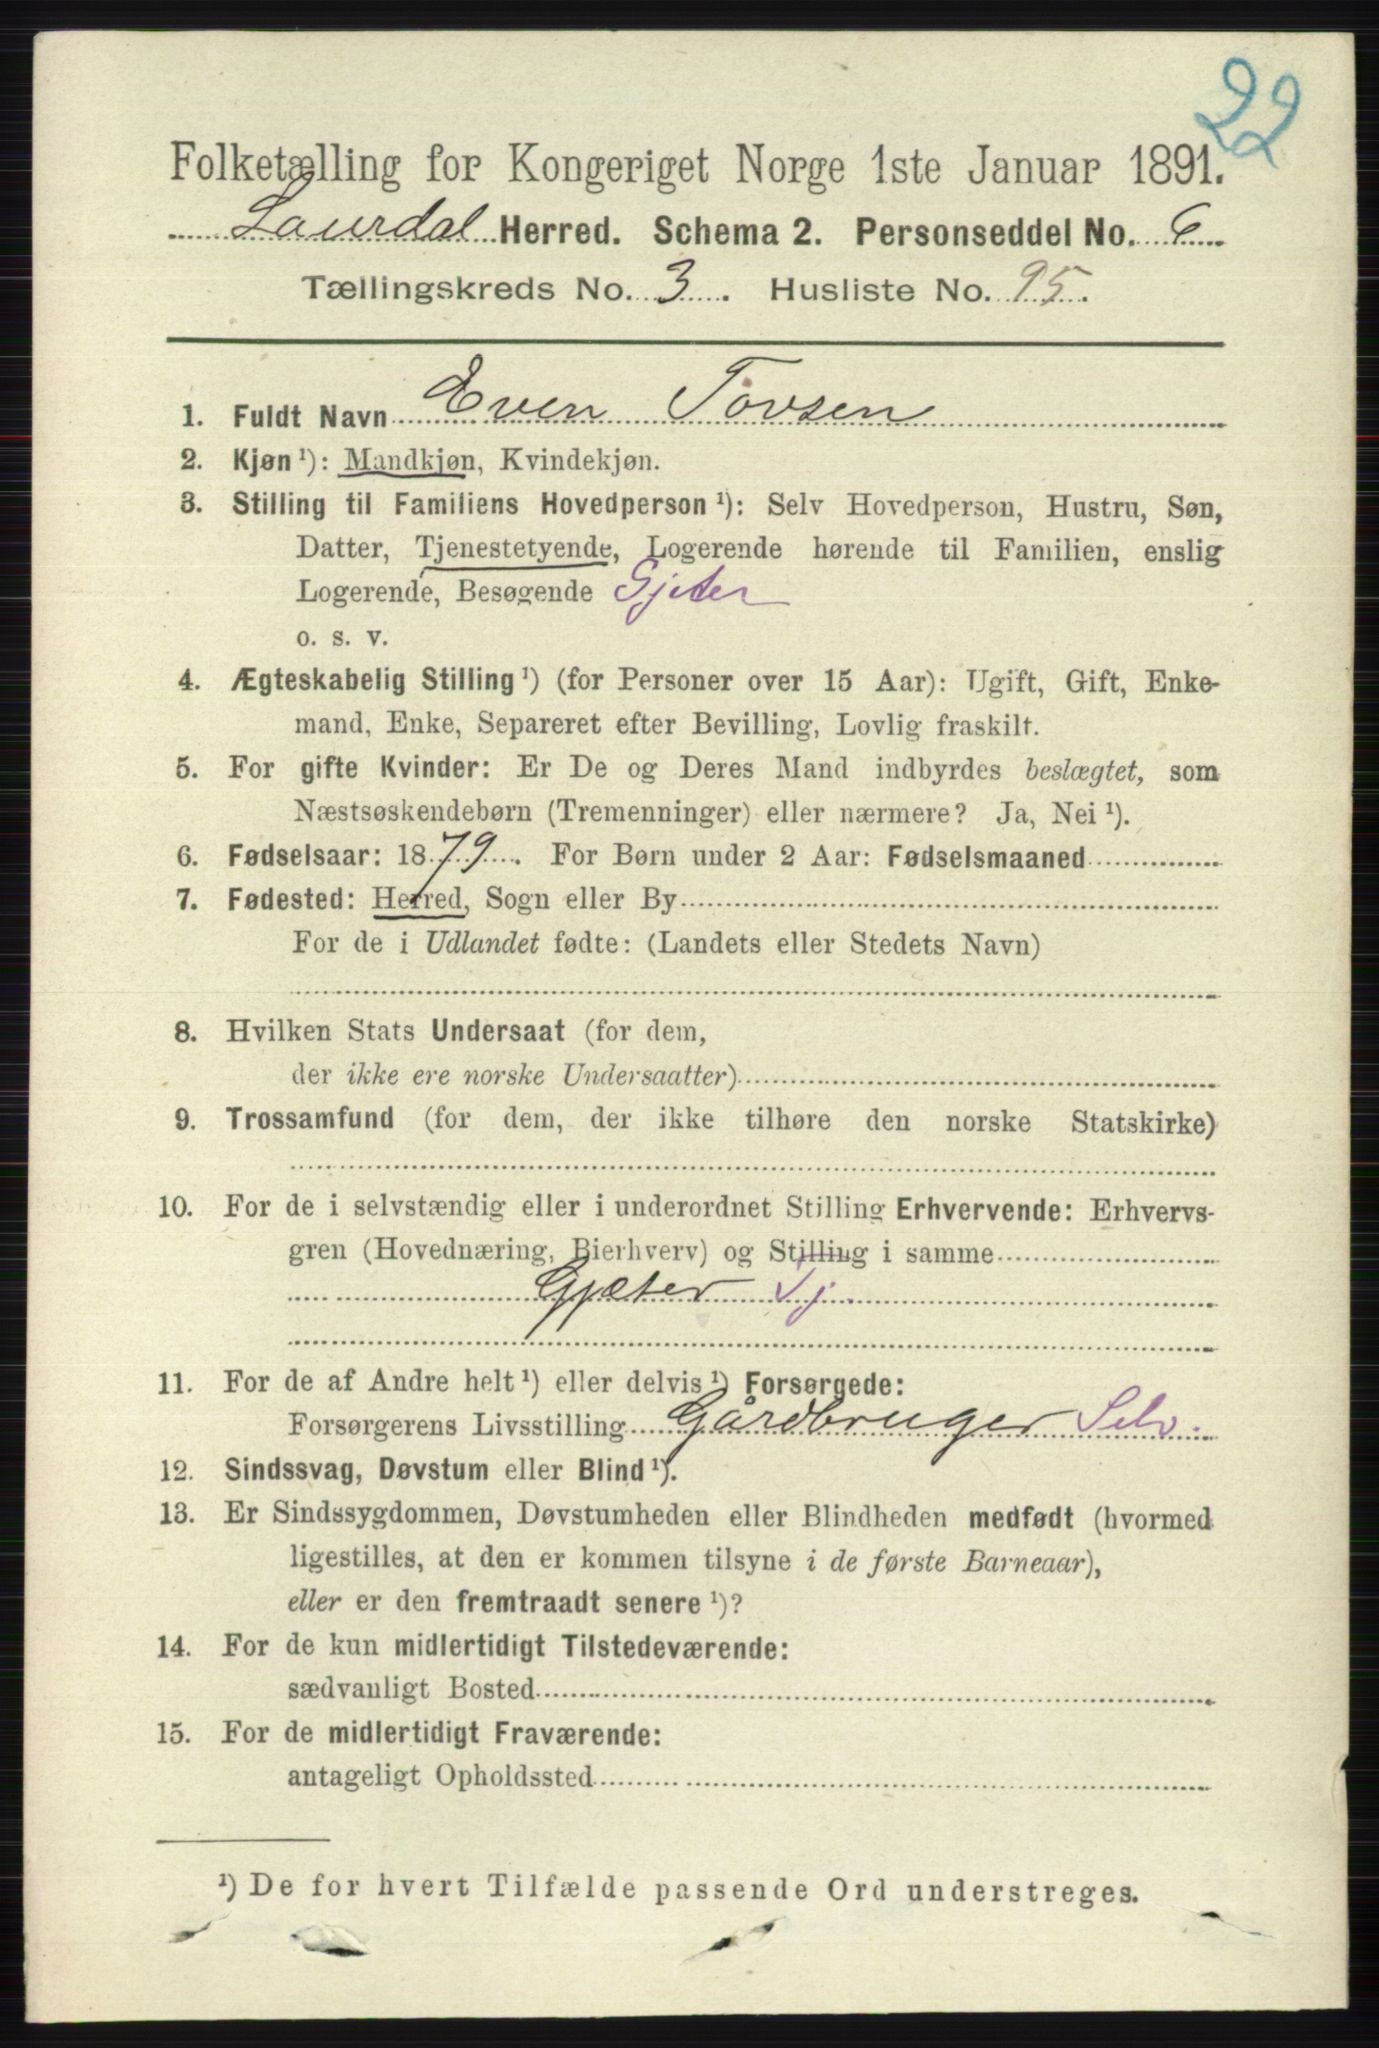 22
Folketælling for Kongeriget Norge 1ste Januar 1891.
Laurdal Herred. Schema 2. Personseddel No. 6
Tællingskreds No. 3. Husliste No. 95.
1. Fuldt Navn Even Tovsen
2. Kjøn ¹): Mandkjøn, Kvindekjøn.
3. Stilling til Familiens Hovedperson ¹): Selv Hovedperson, Hustru, Søn,
Datter, Tjenestetyende, Logerende hørende til Familien, enslig
Logerende, Besøgende Gjeter
o. s. v.
4. Ægteskabelig Stilling ¹) (for Personer over 15 Aar): Ugift, Gift, Enke-
mand, Enke, Separeret efter Bevilling, Lovlig fraskilt.
5. For gifte Kvinder: Er De og Deres Mand indbyrdes beslægtet, som
Næstsøskendebørn (Tremenninger) eller nærmere? Ja, Nei ¹).
6. Fødselsaar: 1879. For Børn under 2 Aar: Fødselsmaaned
7. Fødested: Herred, Sogn eller By
For de i Udlandet fødte: (Landets eller Stedets Navn)
8. Hvilken Stats Undersaat (for dem,
der ikke ere norske Undersaatter)
9. Trossamfund (for dem, der ikke tilhøre den norske Statskirke)
10. For de i selvstændig eller i underordnet Stilling Erhvervende: Erhvervs-
gren (Hovednæring, Bierhverv) og Stilling i samme
Gjæter Tj.
11. For de af Andre helt ¹) eller delvis ¹) Forsørgede:
Forsørgerens Livsstilling Gårdbruger Selv.
12. Sindssvag, Døvstum eller Blind ¹).
13. Er Sindssygdommen, Døvstumheden eller Blindheden medfødt (hvormed
ligestilles, at den er kommen tilsyne i de første Barneaar),
eller er den fremtraadt senere ¹)?
14. For de kun midlertidigt Tilstedeværende:
sædvanligt Bosted
15. For de midlertidigt Fraværende:
antageligt Opholdssted
¹) De for hvert Tilfælde passende Ord understreges.